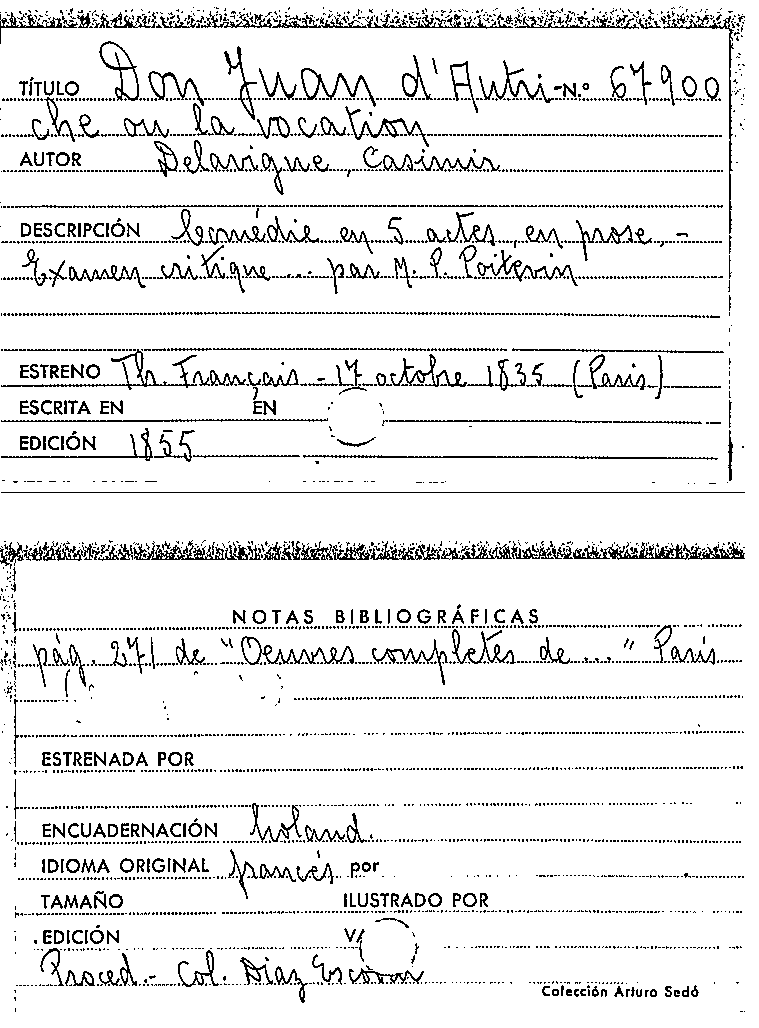 TÍTULO Don Juan d'Autri-N.º 67900
che ou la vocation
AUTOR Delavigne, Casimir
DESCRIPCIÓN Comédie en 5 actes, en prose.-
Examen critique... par M. P. Poitevin
ESTRENO Th. Français - 17 octobre 1835 (Paris)
ESCRITA EN EN
EDICIÓN 1855
NOTAS BIBLIOGRÁFICAS
pág. 271 de "Oeuvres completes de..." París
ESTRENADA POR
ENCUADERNACIÓN holand.
IDIOMA ORIGINAL francés por
TAMAÑO ILUSTRADO POR
EDICIÓN
Proced.- Col. Díaz Escovar
Colección Arturo Sedó